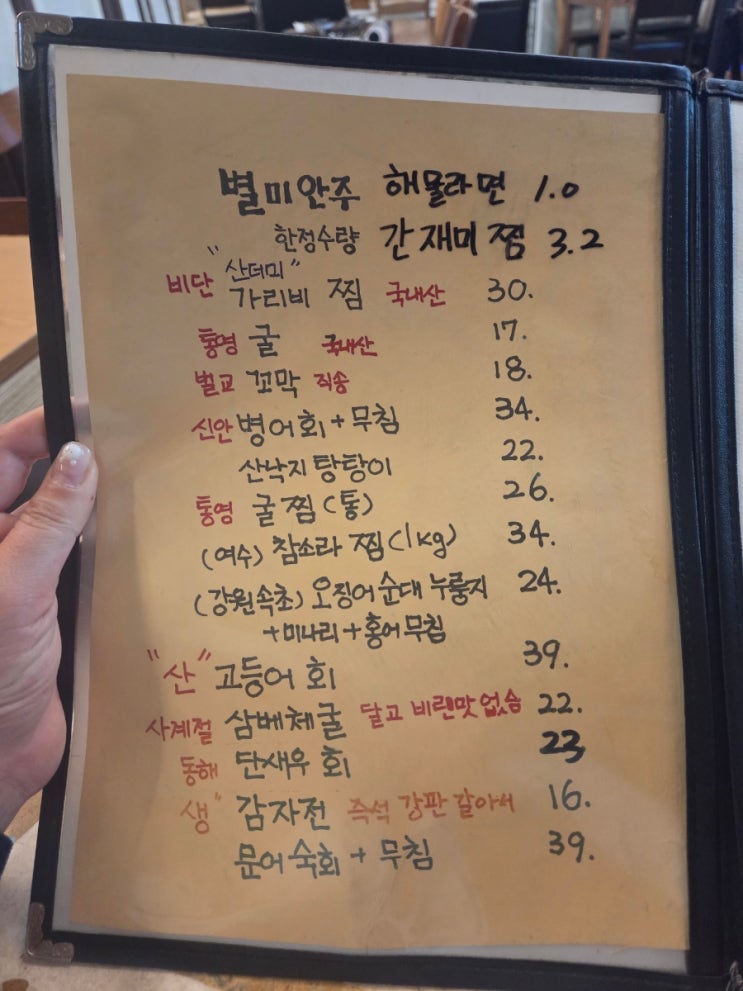 별미안주 해물라면 1.0
한정수량 간재미찜 3.2
"산더미"
비단 가리비 찜 국내산 30.
통영 굴 국내산 17.
벌교 꼬막 직송 18.
신안 병어회+무침 34.
산낙지탕탕이 22.
통영 굴찜(통) 26.
(여수) 참소라 찜(1kg) 34.
(강원속초) 오징어순대 누룽지 24.
+미나리+홍어무침
"산" 고등어 회 39.
사계절 삼배체굴 달고 비린맛없슴 22.
동해 단새우 회 23
생" 감자전 즉석 강판 갈아서 16.
문어숙회 + 무침 39.